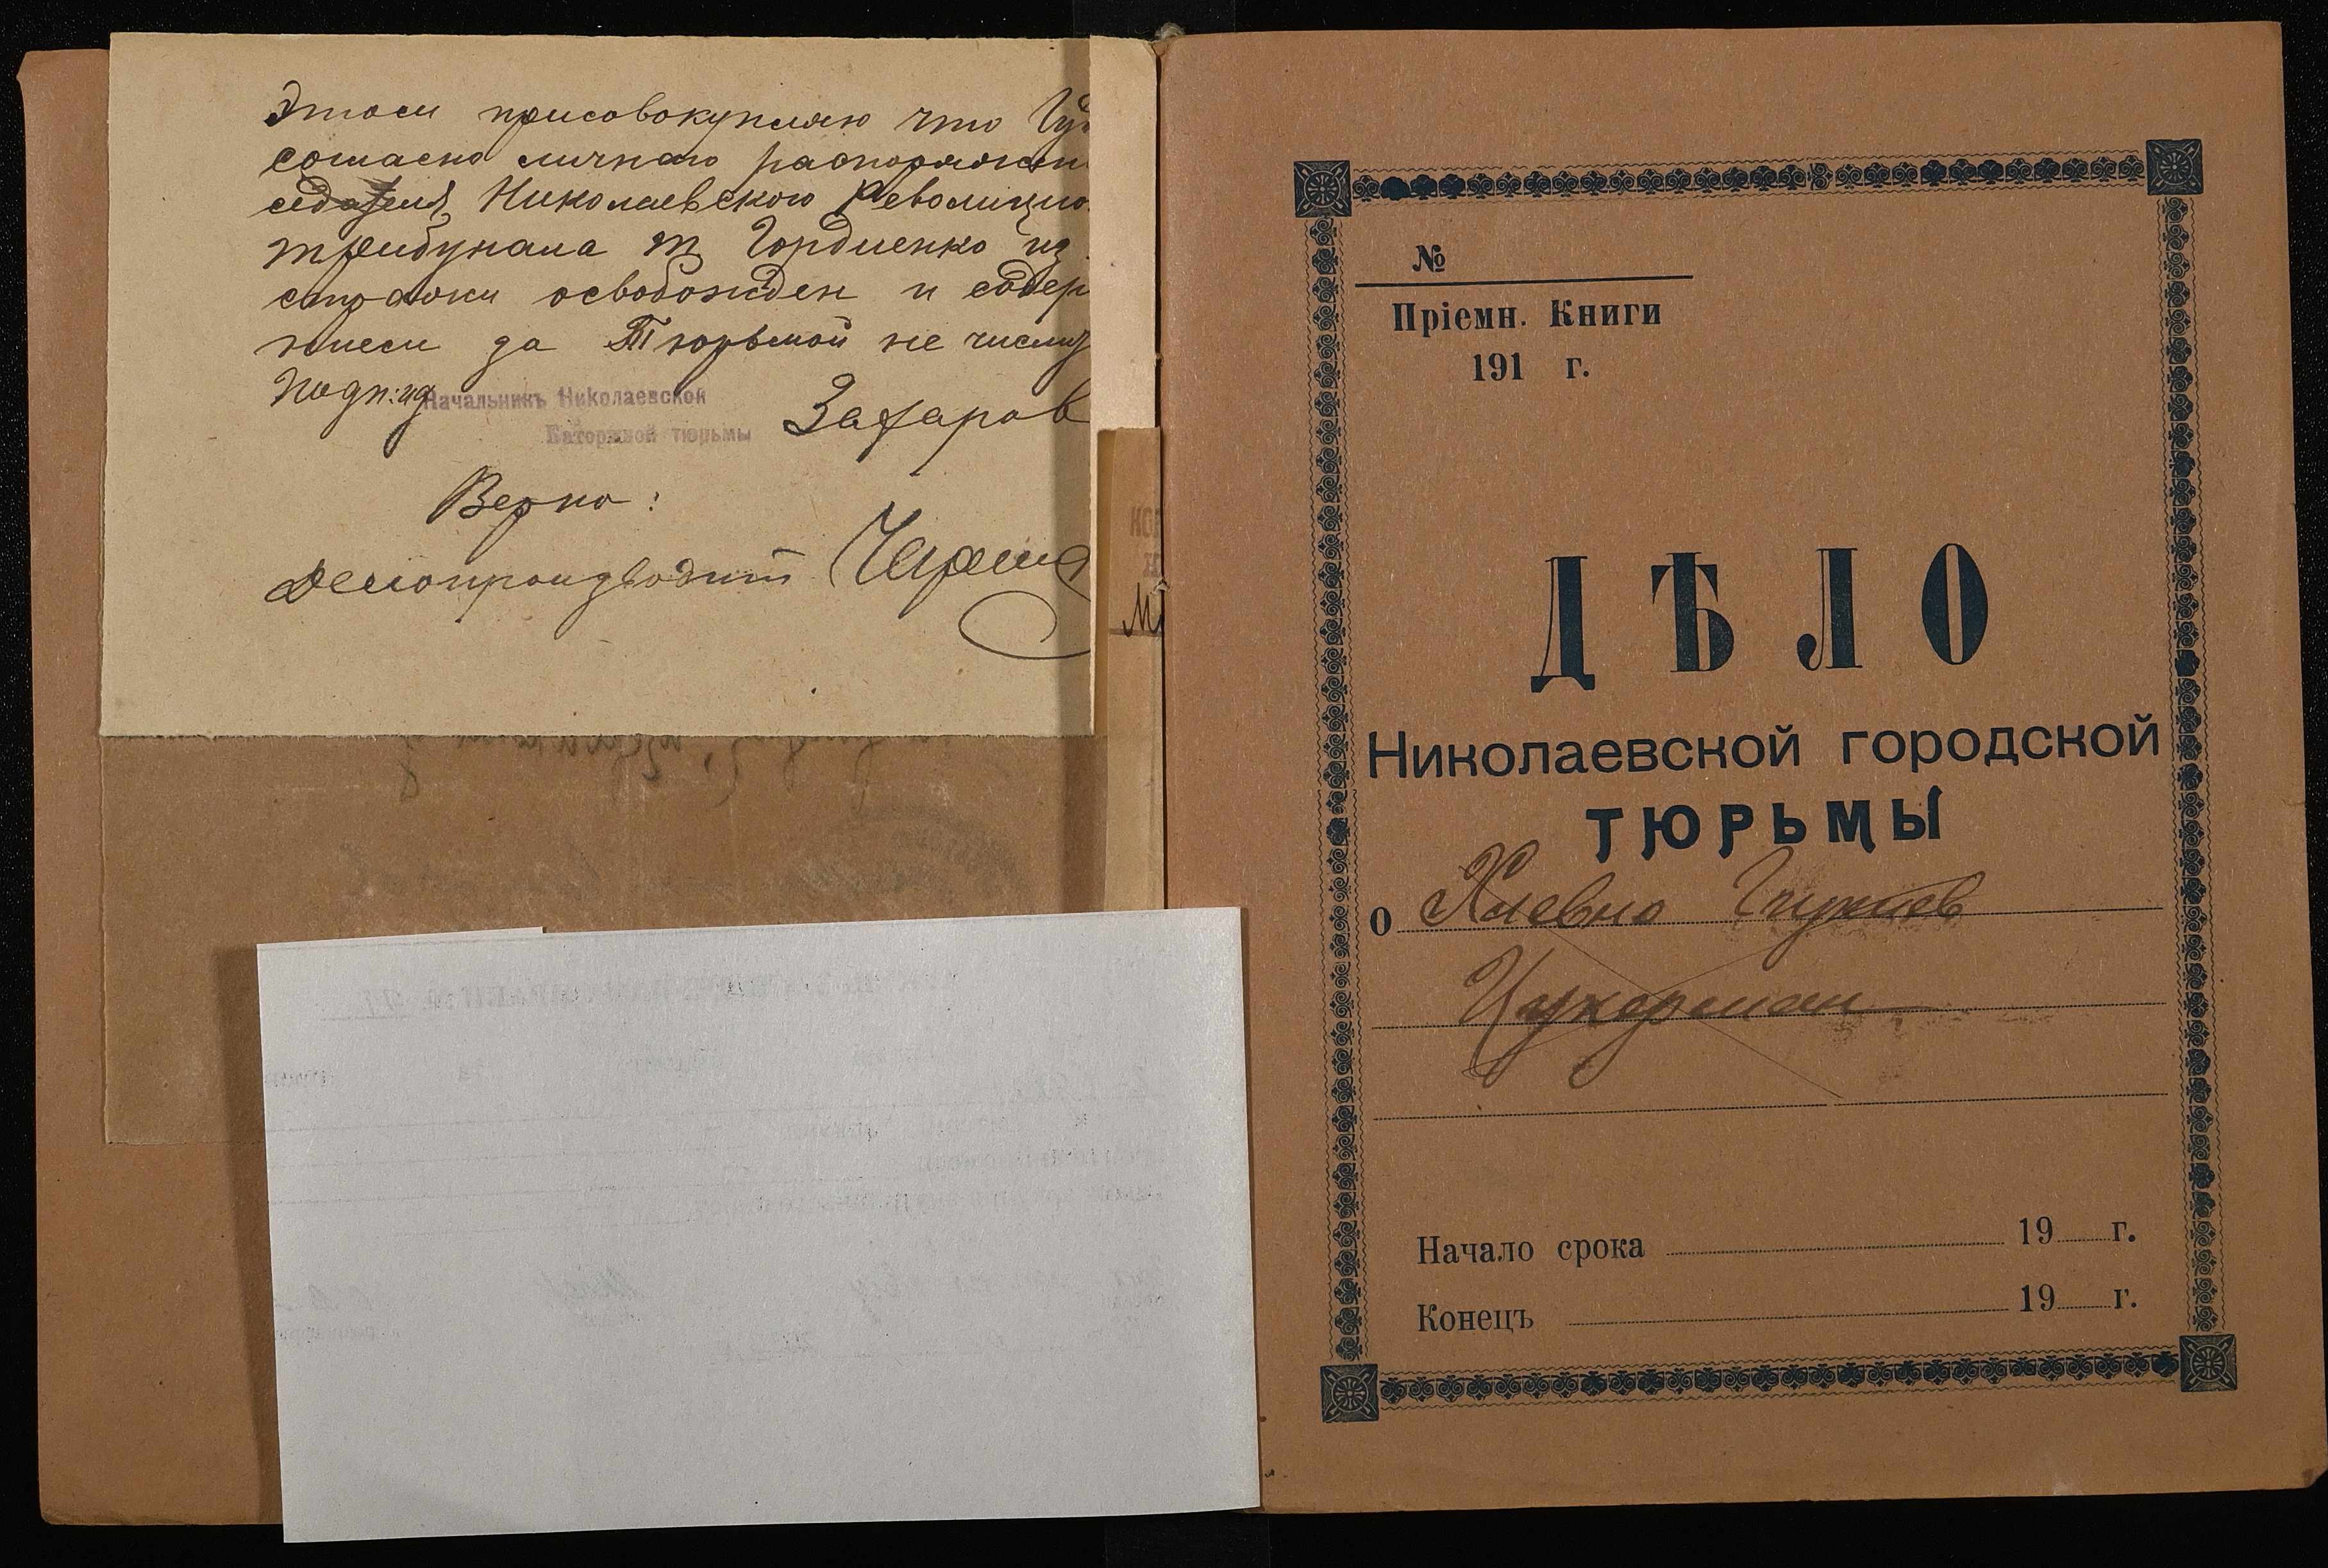 этом присовокупляю что Гу
согласно личнаго распоряжен
седателя Николаевского Революцио
трибунала т Гордиенко из
стражи освобожден и содер
нием за Тюрьмой не числит
Подп:
Начальникъ Николаевской
Каторжной тюрьмы
Захаров
Верно:
Делопроизводит
№
Пріемн. Книги
191 г.
ДѢЛО
Николаевской городской
ТЮРЬМЫ
о Хлевно
Цукерман
Начало срока 19 г.
Конецъ 19 г.